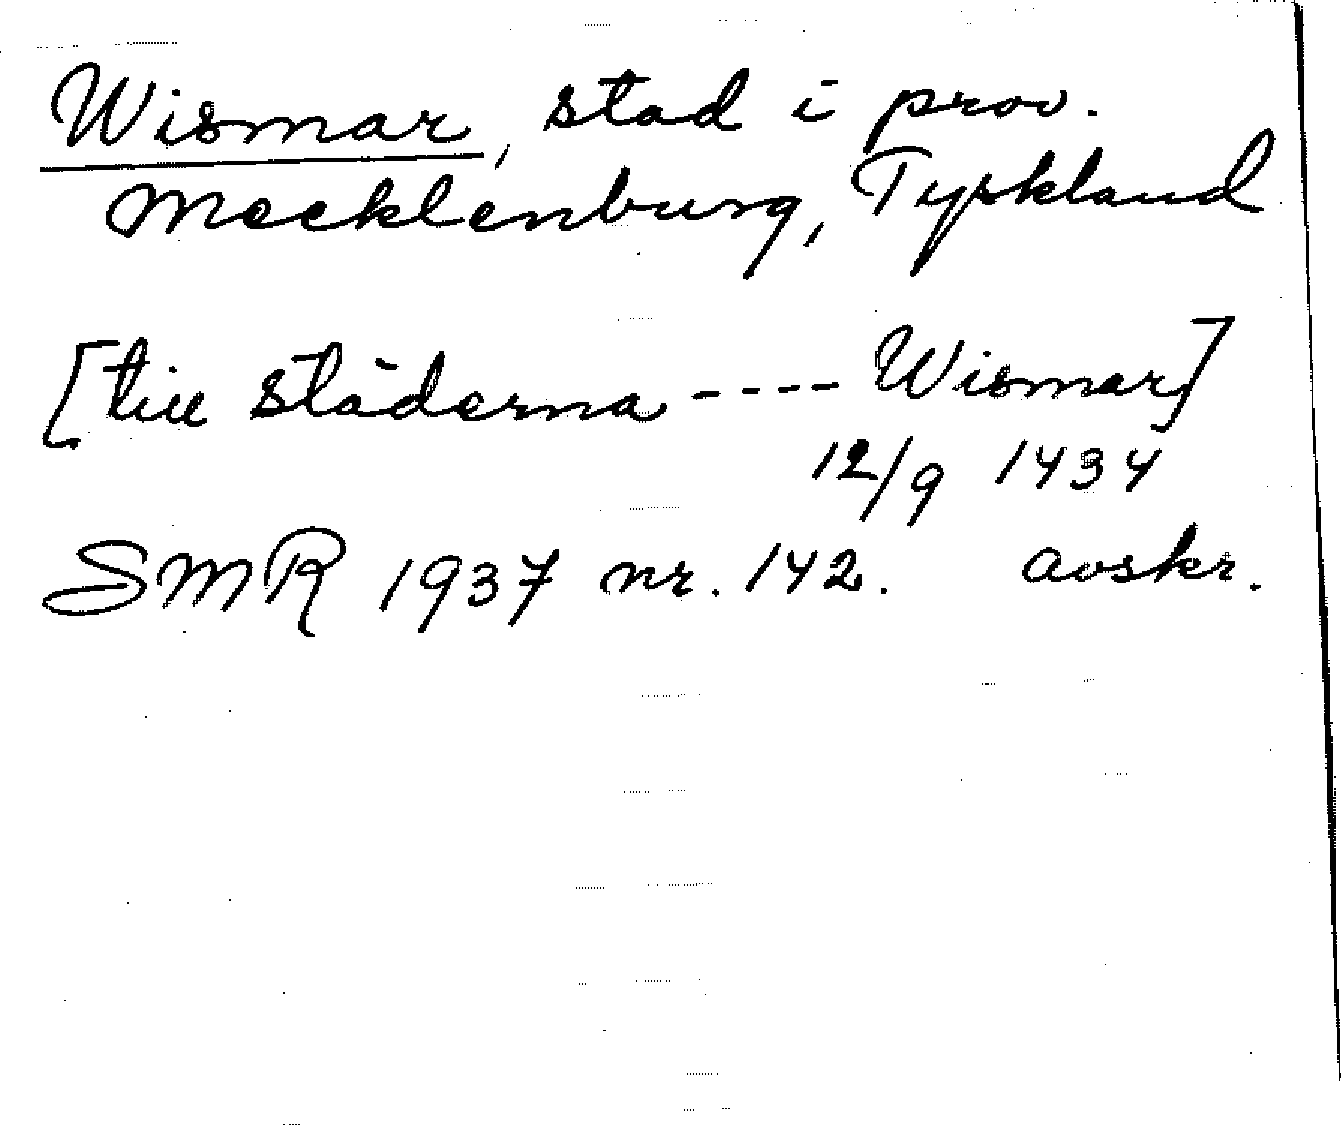 Wismar, stad i prov.
Mecklenburg, Tyskland
[till städerna ---- Wismar]
12/9 1434
SMR 1937 nr. 142. avskr.